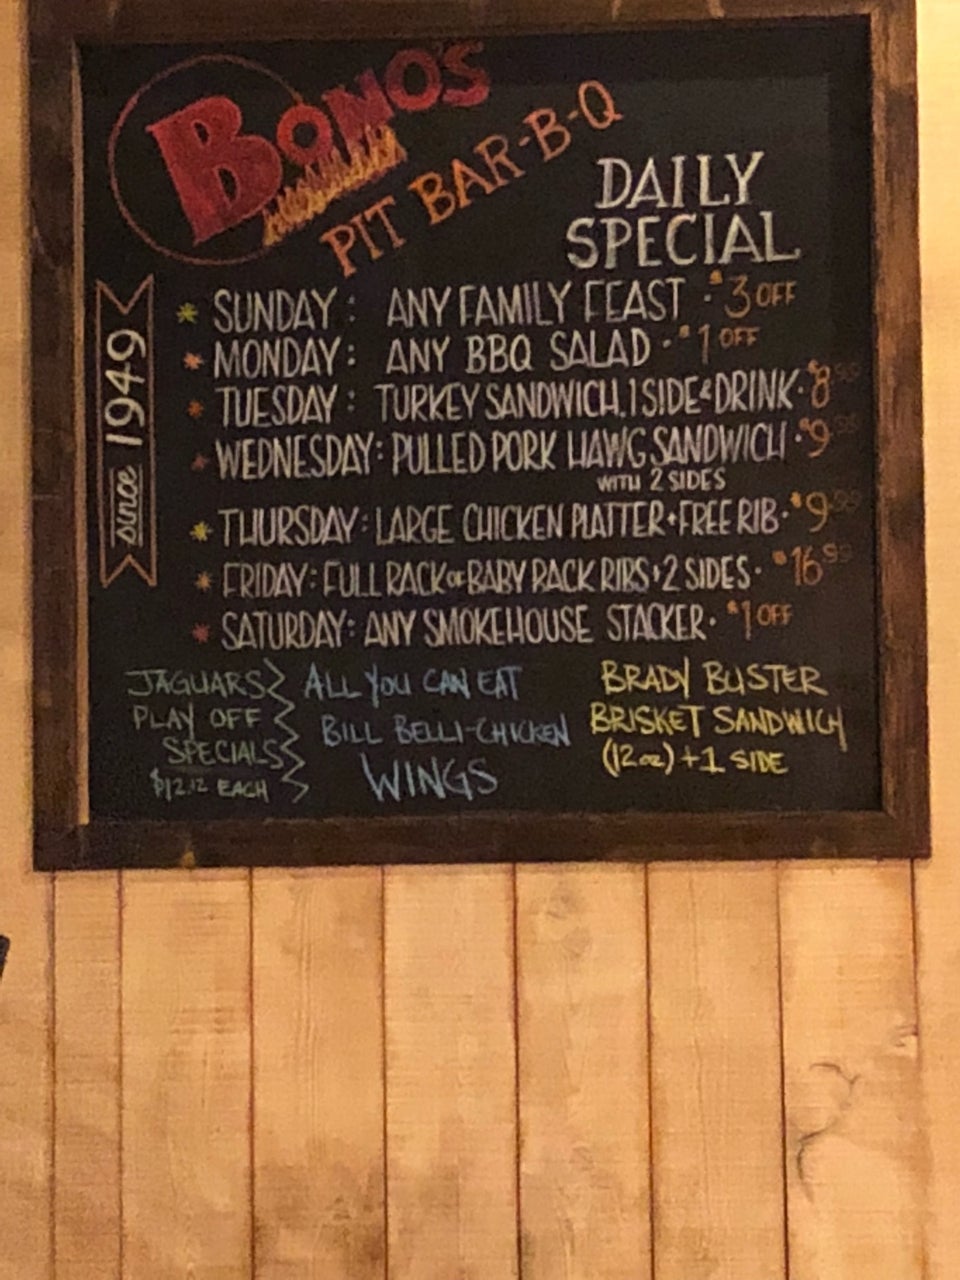 BONO'S
PIT BAR-B-Q
since 1949
DAILY
SPECIAL
* SUNDAY: ANY FAMILY FEAST · $3 OFF
* MONDAY: ANY BBQ SALAD · $1 OFF
* TUESDAY: TURKEY SANDWICH, 1 SIDE & DRINK · $8
* WEDNESDAY: PULLED PORK HAWG SANDWICH · $9
WITH 2 SIDES
* THURSDAY: LARGE CHICKEN PLATTER + FREE RIB · $9
* FRIDAY: FULL RACK OF BABY BACK RIBS + 2 SIDES · $16.99
* SATURDAY: ANY SMOKEHOUSE STACKER · $1 OFF
JAGUARS
PLAY OFF
SPECIALS
$12.12 EACH
ALL YOU CAN EAT
BILL BELLI-CHICKEN
WINGS
BRADY BUSTER
BRISKET SANDWICH
(12oz) + 1 SIDE